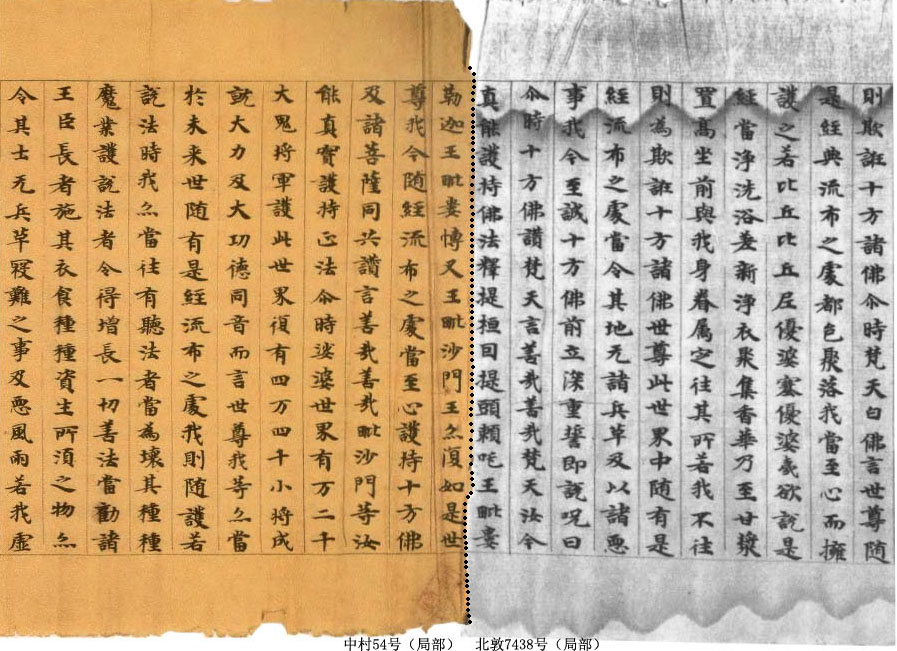 則欺誑十方諸佛尒時梵天白佛言世尊随
是經典流布之處都邑聚落我當至心而擁
護之若比丘比丘尼優婆塞優婆夷欲說是
經當淨洗浴著新淨衣聚集香華乃至甘漿
置髙坐前與我身眷属定往其所若我不往
則為欺誑十方諸佛世尊此世界中随有是
經流布之處當令其地无諸兵革及以諸惡
事我今至誠十方佛前立深重誓即說呪曰
尒時十方佛讃梵天言善哉善哉梵天汝今
真能護持佛法釋提桓因提頭頼吒王毗婁
勒迦王毗婁博叉王毗沙門王亦復如是世
尊我今随經流布之處當至心護持十方佛
及諸菩薩同共讃言善哉善哉毗沙門等汝
能真實護持正法尒時娑婆世界有万二千
大鬼将軍護此世界復有四万四千小将成
就大力及大功德同音而言世尊我等亦當
於未来世随有是經流布之處我則随護若
說法時我亦當往有聽法者當為壞其種種
魔業護說法者令得增長一切善法當勸諸
王臣長者施其衣食種種資生所湏之物亦
令其土无兵革寇難之事及惡風雨若我虛
中村54号（局部）
北敦7438号（局部）